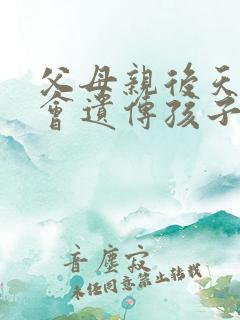 父母親後天
會遺傳孩子
音塵寂
未经同意禁止转载